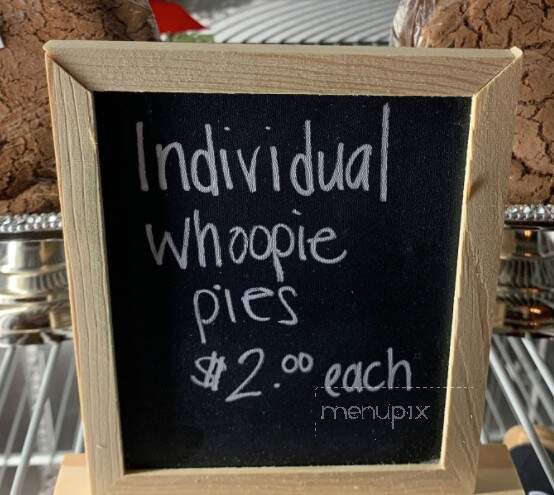 Individual
whoopie
pies
$2.00 each
menupix